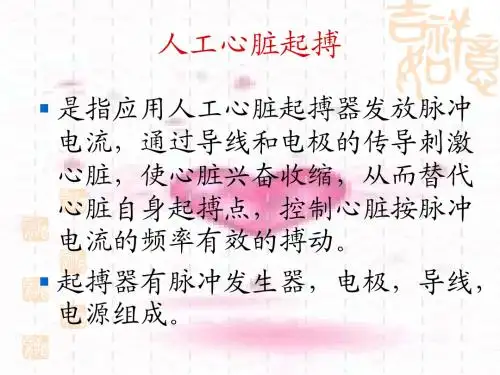 人工心脏起搏
是指应用人工心脏起搏器发放脉冲
电流，通过导线和电极的传导刺激
心脏，使心脏兴奋收缩，从而替代
心脏自身起搏点，控制心脏按脉冲
电流的频率有效的搏动。
起搏器有脉冲发生器，电极，导线，
电源组成。
吉祥如意